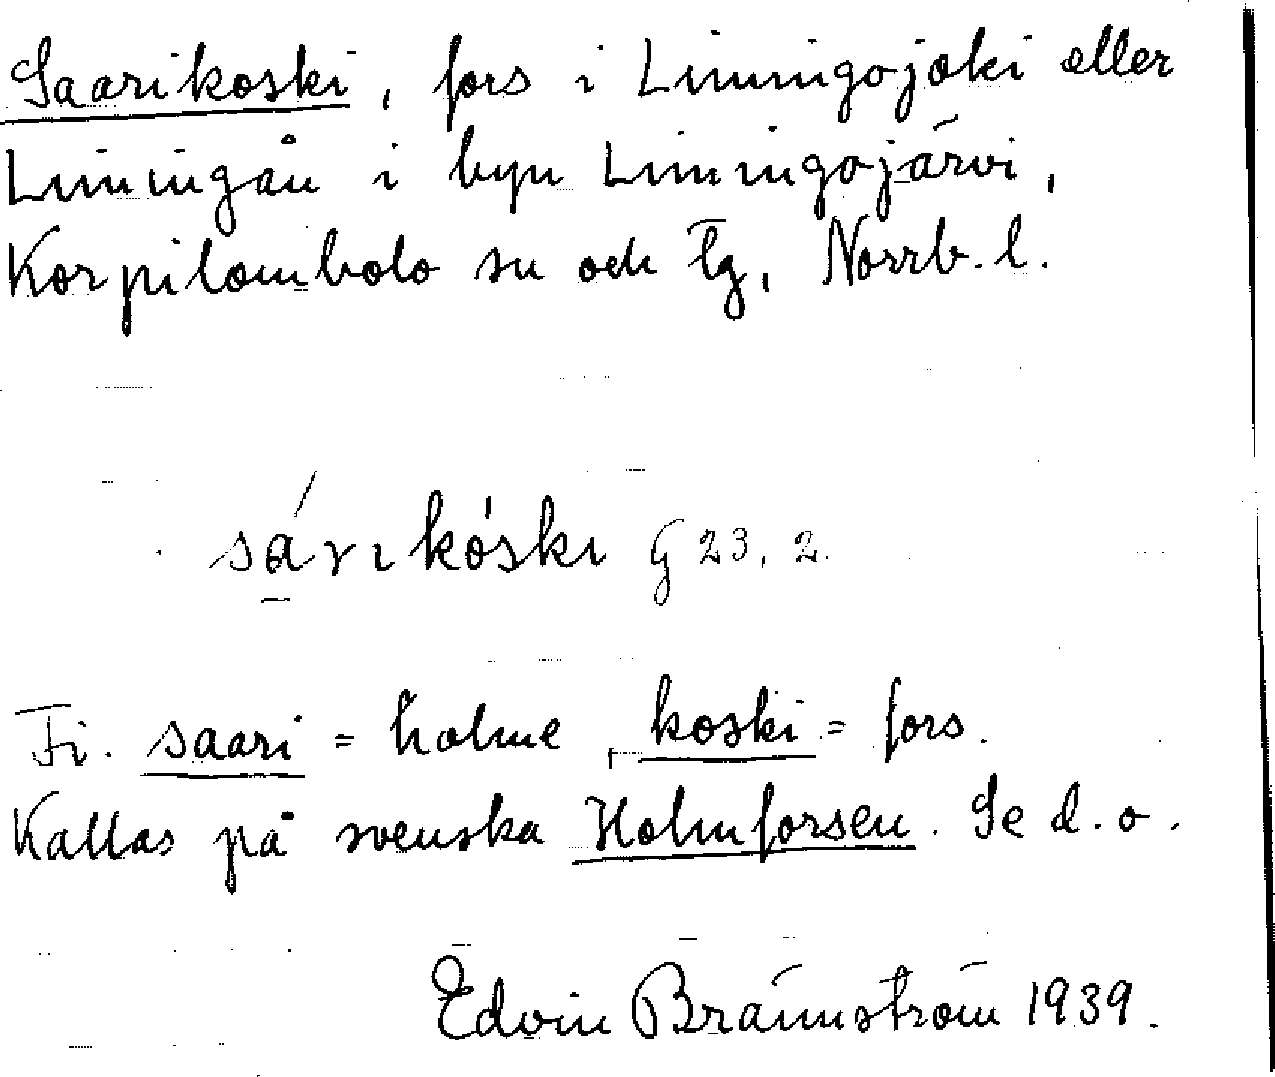 Saarikoski, fors i Liminigojoki eller
Liminigån i byn Liminigojärvi,
Korpilombolo sn och tg, Norrb. l.
sárikóski G 23, 2.
Fi. saari = holme, koski = fors.
Kallas på svenska Holmforsen. Se d. o.
Edvin Brännström 1939.